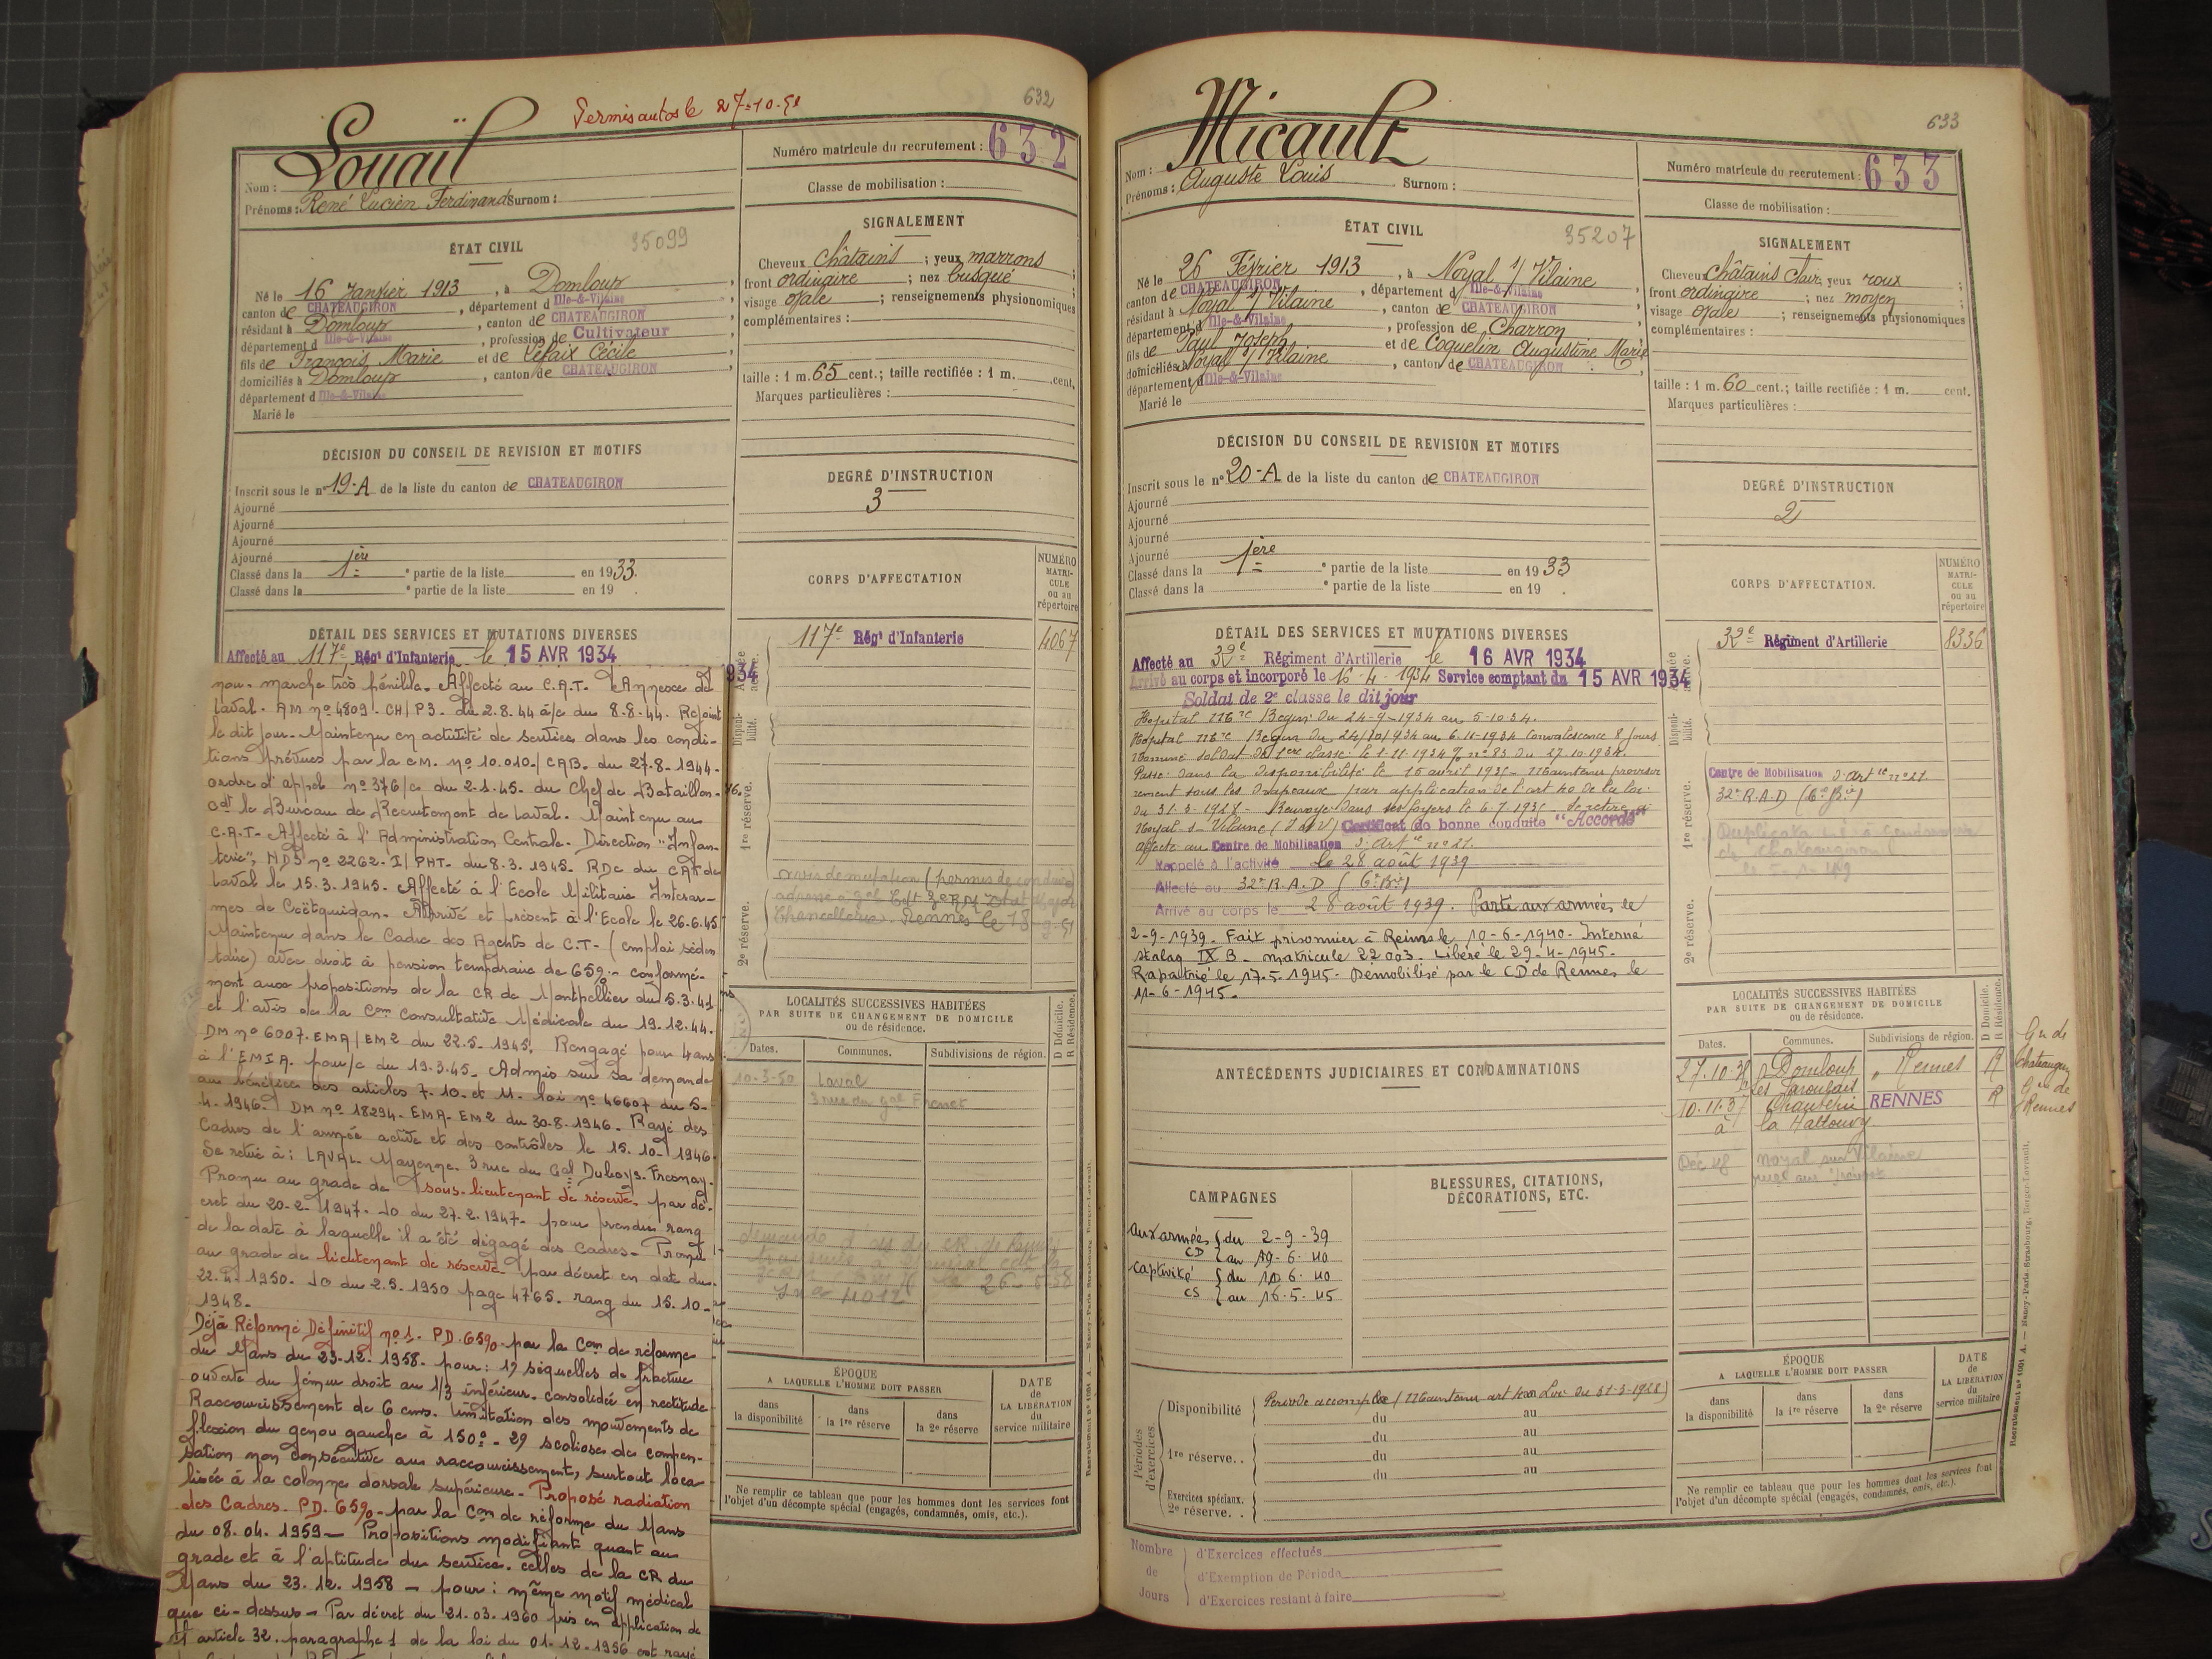 Permis autos le 27-10-51
632
Louaïl
Nom :
Prénoms : René Lucien Ferdinand Surnom :
Numéro matricule du recrutement : 632
Classe de mobilisation :
ÉTAT CIVIL
35099
Né le 16 Janvier 1913, à Domloup,
canton de CHATEAUGIRON, département d Ille-&-Vilaine
résidant à Domloup, canton de CHATEAUGIRON,
département d Ille-&-Vilaine, profession de Cultivateur
fils de François Marie et de Lefaix Cécile,
domiciliés à Domloup, canton de CHATEAUGIRON,
département d Ille-&-Vilaine
Marié le
SIGNALEMENT
Cheveux châtains ; yeux marrons ;
front ordinaire ; nez busqué ;
visage ovale ; renseignements physionomiques
complémentaires :
taille : 1 m. 65 cent.; taille rectifiée : 1 m. cent.
Marques particulières :
DÉCISION DU CONSEIL DE REVISION ET MOTIFS
Inscrit sous le n° 19-A de la liste du canton de CHATEAUGIRON
Ajourné
Ajourné
Ajourné
Ajourné
Classé dans la 1ère ° partie de la liste en 1933.
Classé dans la ° partie de la liste en 19 .
DEGRÉ D'INSTRUCTION
3
CORPS D'AFFECTATION
NUMÉRO MATRI-CULE ou au répertoire
117e Régt d'Infanterie 4067
DÉTAIL DES SERVICES ET MUTATIONS DIVERSES
Affecté au 117e Régt d'Infanterie le 15 AVR 1934
nou. marche très pénible. Affecté au C.A.T. Annexe de
Laval. AM no 4809. CH/P3. du 2.8.44 à/c du 8.8.44. Rejoint
le dit jour. Maintenu en activité de service dans les condi-
tions prévues par la CM. no 10.010./CAB. du 27.8.1944.
ordre d'appel no 376/c du 2.1.45. du Chef de Bataillon.
Cdt le Bureau de Recrutement de Laval. Maintenu au
C.A.T. Affecté à l'Administration Centrale. Direction "Infan-
terie", ND3 no 2262-I/PHT. du 8.3.1945. RDC du CAT de
Laval le 15.3.1945. Affecté à l'Ecole Militaire Interar-
mes de Coëtquidan. Arrivé et présent à l'Ecole le 26.6.45
Maintenu dans le Cadre des Agents de C.T. (emploi séden
taire) avec droit à pension temporaire de 65% conformé-
ment aux propositions de la CR de Montpellier du 5.3.41
et l'avis de la Com Consultative Médicale du 19.12.44.
DM no 6007.EMA/EM2 du 22.5.1945. Rengagé pour 4 ans
à l'EMIA. pour/c du 19.3.45. Admis sur sa demande
au bénéfice des articles 7. 10. et 11. loi no 46607 du 5-
4.1946. DM no 18294. EMA. EM2 du 30.8.1946. Rayé des
Cadres de l'armée active et des contrôles le 15.10.1946.
Se retire à : LAVAL Mayenne. 3 rue du Gal Duboys-Fresnay.
Promu au grade de sous-lieutenant de réserve par dé-
cret du 20-2-1947. JO du 27.2.1947. pour prendre rang
de la date à laquelle il a été dégagé des Cadres. Promu
au grade de lieutenant de réserve par décret en date du
22.4.1950. JO du 2.5.1950 page 4765. rang du 15.10-
1948.
Déjà Réformé Définitif no 1. PD.65%. par la Com de réforme
du Mans du 23.12.1958. pour : 1°) séquelles de fracture
ouverte du fémur droit au 1/3 inférieur. consolidée en rectitude
Raccourcissement de 6 cms. limitation des mouvements de
flexion du genou gauche à 150°. 2°) scoliose de compen-
sation non consécutive au raccourcissement, surtout loca-
lisée à la colonne dorsale supérieure. Proposé radiation
des Cadres. PD.65%. par la Com de réforme du Mans
du 08.04.1959 — Propositions modifiant quant au
grade et à l'aptitude du service. celles de la CR du
Mans du 23.12.1958 — pour : même motif médical
que ci-dessus — Par décret du 21.03.1960 pris en application de
l'article 32. paragraphe 1 de la loi du 01.12.1956 est rayé
934
Disponi-bilité.
1re réserve.
2e réserve.
avis de mutation (permis de conduire)
adressé à gal Cdt 3e RM Etat Major
Chancellerie. Rennes le 18-9-51
LOCALITÉS SUCCESSIVES HABITÉES
PAR SUITE DE CHANGEMENT DE DOMICILE
ou de résidence.
D Domicile. R Résidence.
Dates. Communes. Subdivisions de région.
10-3-50 Laval
3 rue du gal Fresnet
ÉPOQUE
A LAQUELLE L'HOMME DOIT PASSER
dans la disponibilité
dans la 1re réserve
dans la 2e réserve
DATE de LA LIBÉRATION du service militaire
Ne remplir ce tableau que pour les hommes dont les services font
l'objet d'un décompte spécial (engagés, condamnés, omis, etc.).
633
Micault
Nom :
Prénoms : Auguste Louis Surnom :
Numéro matricule du recrutement : 633
Classe de mobilisation :
ÉTAT CIVIL
35207
Né le 26 Février 1913, à Noyal s/ Vilaine,
canton de CHATEAUGIRON, département d Ille-&-Vilaine
résidant à Noyal s/ Vilaine, canton de CHATEAUGIRON,
département d Ille-&-Vilaine, profession de Charron
fils de Paul Joseph et de Coquelin Augustine Marie
domiciliés à Noyal s/ Vilaine, canton de CHATEAUGIRON,
département d Ille-&-Vilaine
Marié le
SIGNALEMENT
Cheveux châtains clair; yeux roux
front ordinaire ; nez moyen ;
visage ovale ; renseignements physionomiques
complémentaires :
taille : 1 m. 60 cent.; taille rectifiée : 1 m. cent.
Marques particulières :
DÉCISION DU CONSEIL DE REVISION ET MOTIFS
Inscrit sous le n° 20-A de la liste du canton de CHATEAUGIRON
Ajourné
Ajourné
Ajourné
Ajourné
Classé dans la 1ère ° partie de la liste en 1933
Classé dans la ° partie de la liste en 19 .
DEGRÉ D'INSTRUCTION
2
CORPS D'AFFECTATION.
NUMÉRO MATRI-CULE ou au répertoire
32e Régiment d'Artillerie 8336
Centre de Mobilisation d'Artie no 21
32e R.A.D (6e Bie)
DÉTAIL DES SERVICES ET MUTATIONS DIVERSES
Affecté au 32e Régiment d'Artillerie le 16 AVR 1934
Arrivé au corps et incorporé le 16-4-1934 Service comptant du 15 AVR 1934
Soldat de 2e classe le dit jour
Hopital Mre Begin du 24-9-1934 au 5-10-34.
Hopital Mre Begin du 24/10/934 au 6-11-1934 Convalescence 8 jours
Nommé soldat de 1ere classe le 1-11-1934 no 83 du 27.10.1934.
Passé dans la disponibilité le 15 avril 1935. Maintenu provisoi
rement sous les drapeaux par application de l'art 40 de la loi
du 31-3-1928. Renvoyé dans ses foyers le 6.7.1935. Se retire à
Noyal-s-Vilaine (I et V) Certificat de bonne conduite "Accordé"
Affecté au Centre de Mobilisation d'Artie no 21.
Rappelé à l'activité le 28 août 1939
Affecté au 32e R.A.D (6e Bie)
Arrivé au corps le 28 août 1939. Parti aux armées le
2-9-1939. Fait prisonnier à Reims le 10-6-1940. Interné
stalag IX B. matricule 22003. Libéré le 29-4-1945.
Rapatrié le 17.5.1945. Démobilisé par le CD de Rennes le
11-6-1945.
Disponi-bilité.
1re réserve.
2e réserve.
ANTÉCÉDENTS JUDICIAIRES ET CONDAMNATIONS
LOCALITÉS SUCCESSIVES HABITÉES
PAR SUITE DE CHANGEMENT DE DOMICILE
ou de résidence.
D Domicile. R Résidence.
Dates. Communes. Subdivisions de région.
27.10.36 Domloup Rennes R Gie de Chateaugiron
10.11.37 Chantepie RENNES R Gie de Rennes
à la Hallouvry
Déc 48 Noyal sur Vilaine
CAMPAGNES
aux armées { du 2-9-39
CD { au 19-6-40
captivité { du 10 6.40
CS { au 16.5.45
BLESSURES, CITATIONS,
DÉCORATIONS, ETC.
Périodes d'exercices
Disponibilité Période accomplie (Maintenu art 40 Loi du 31-3-1928)
du au
1re réserve. . du au
du au
du au
Exercices spéciaux.
2e réserve. .
ÉPOQUE
A LAQUELLE L'HOMME DOIT PASSER
dans la disponibilité
dans la 1re réserve
dans la 2e réserve
DATE de LA LIBÉRATION du service militaire
Ne remplir ce tableau que pour les hommes dont les services font
l'objet d'un décompte spécial (engagés, condamnés, omis, etc.).
Nombre de Jours
d'Exercices effectués
d'Exemption de Période
d'Exercices restant à faire
Recrutement n° 1091 A. — Nancy-Paris-Strasbourg, Berger-Levrault.